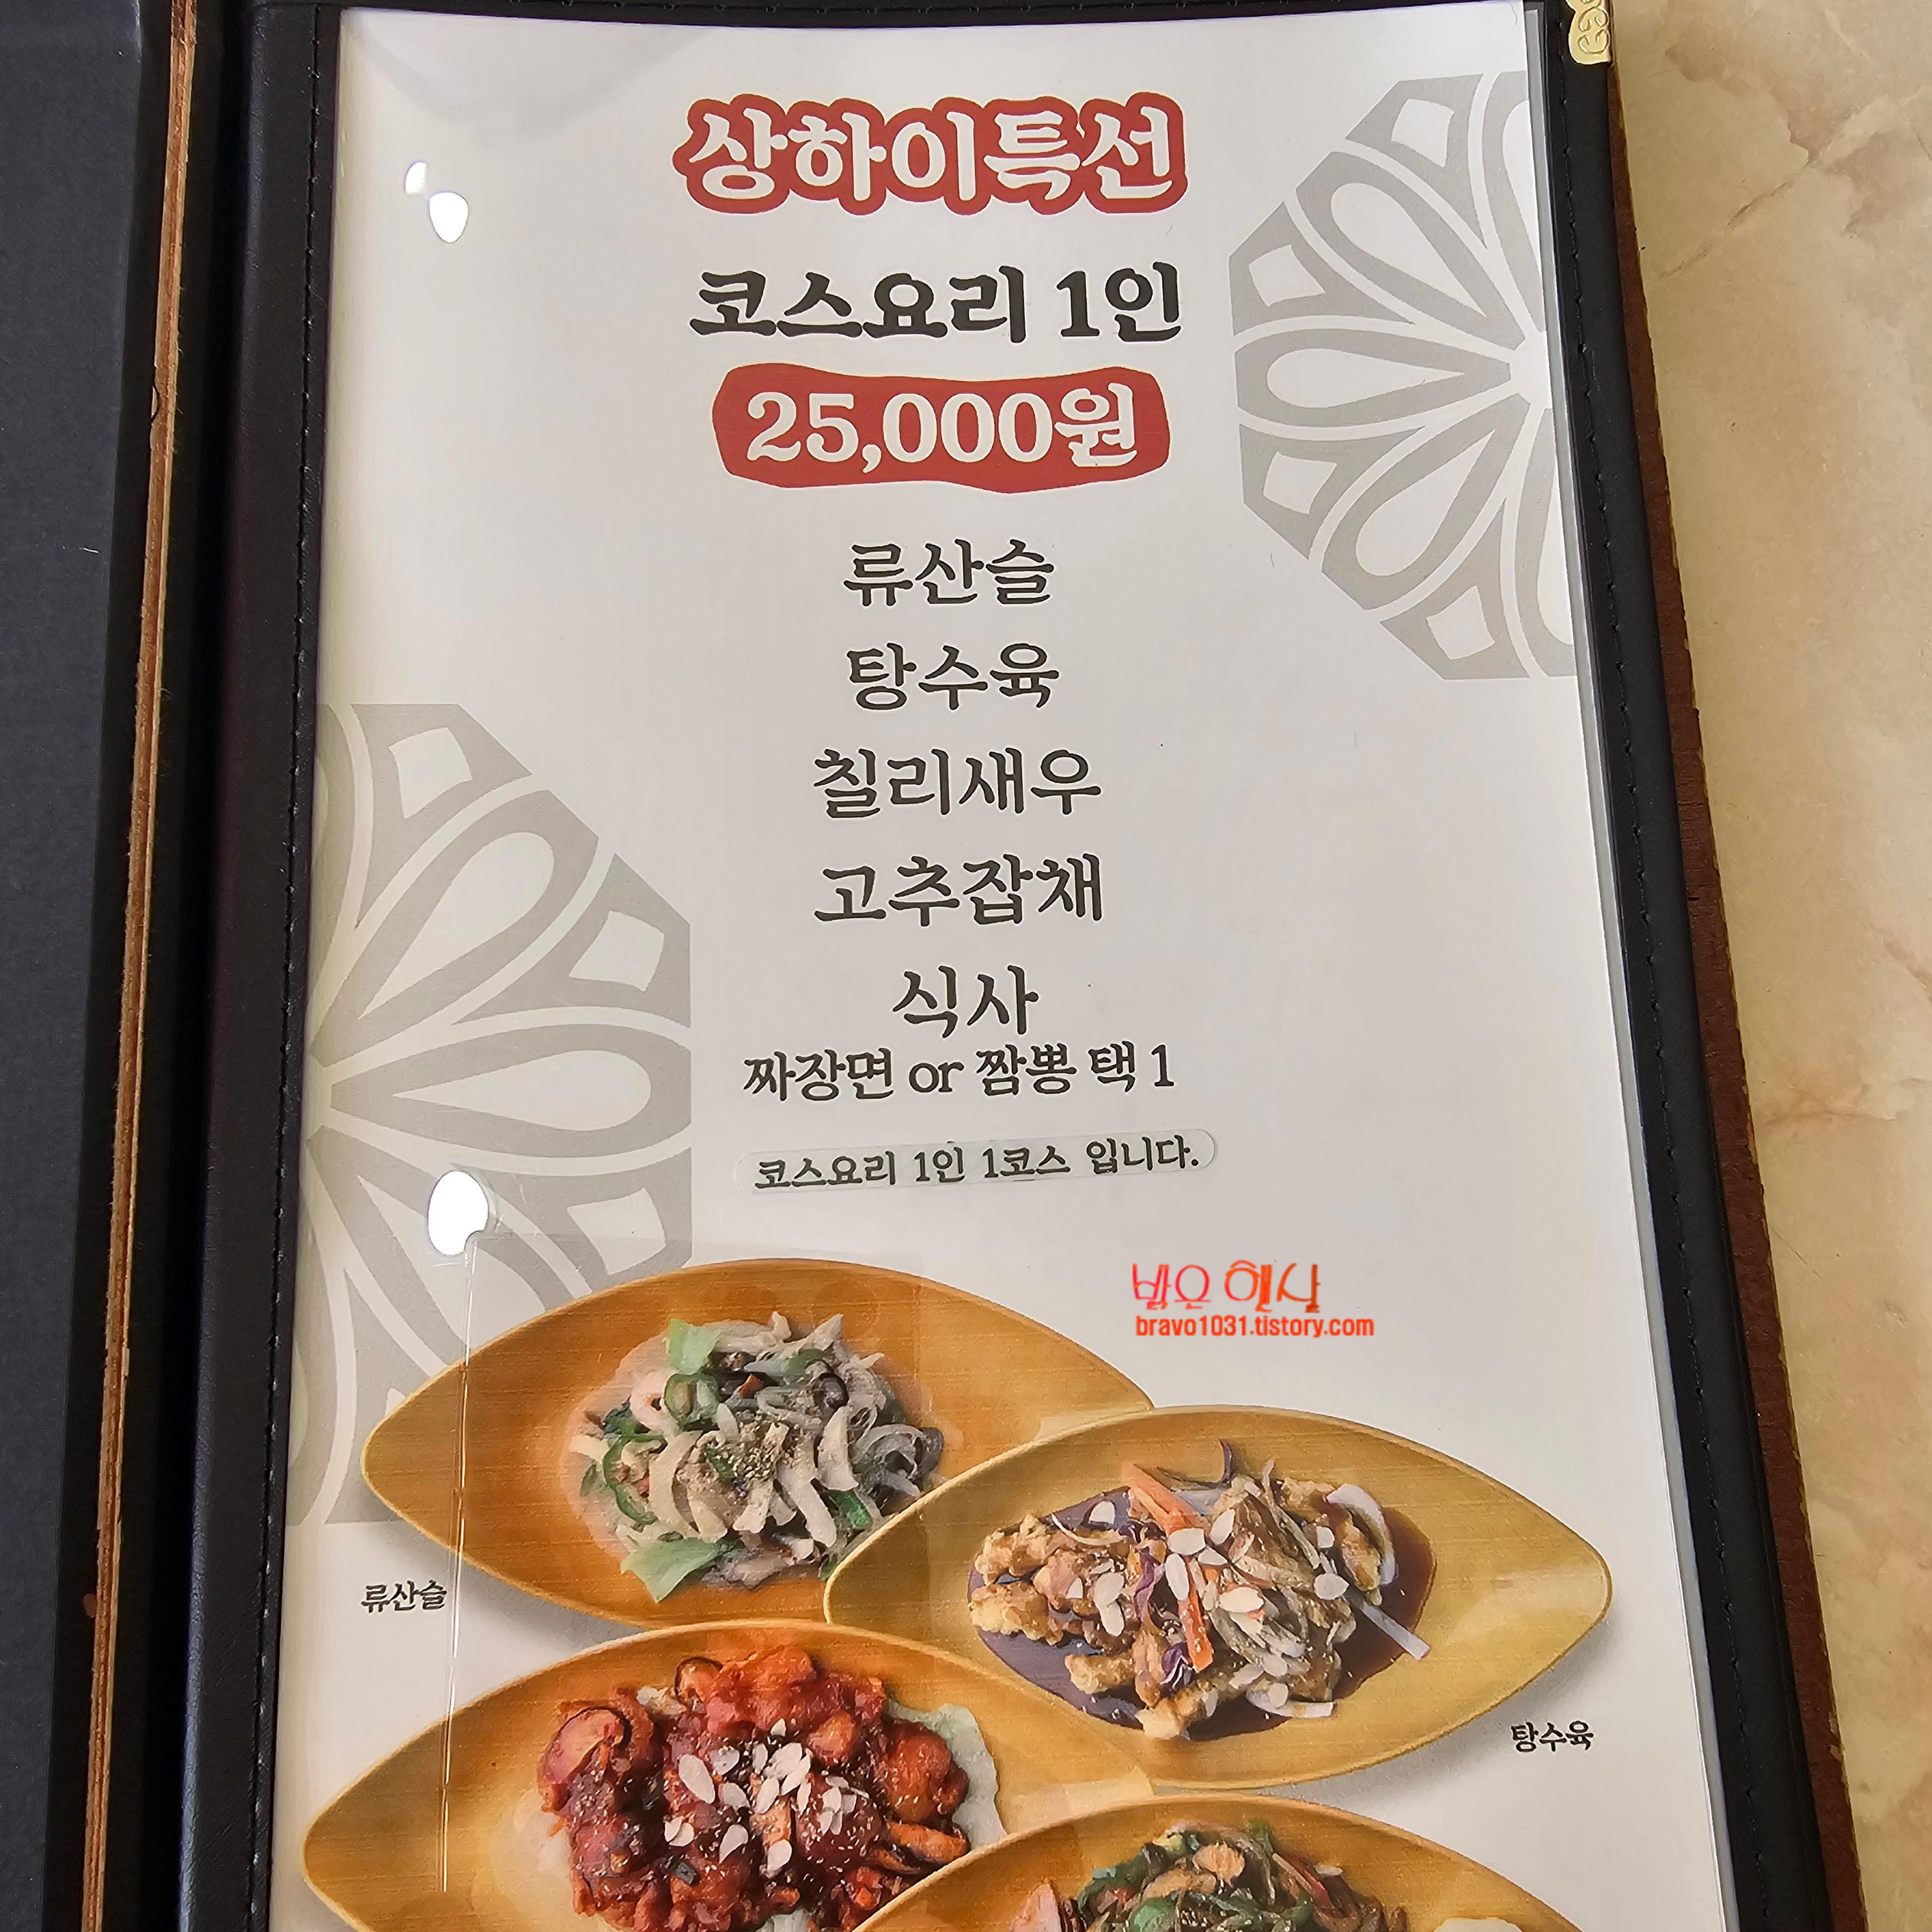 상하이특선
코스요리 1인
25,000원
류산슬
탕수육
칠리새우
고추잡채
식사
짜장면 or 짬뽕 택 1
코스요리 1인 1코스 입니다.
밝은 햇살
bravo1031.tistory.com
류산슬
탕수육